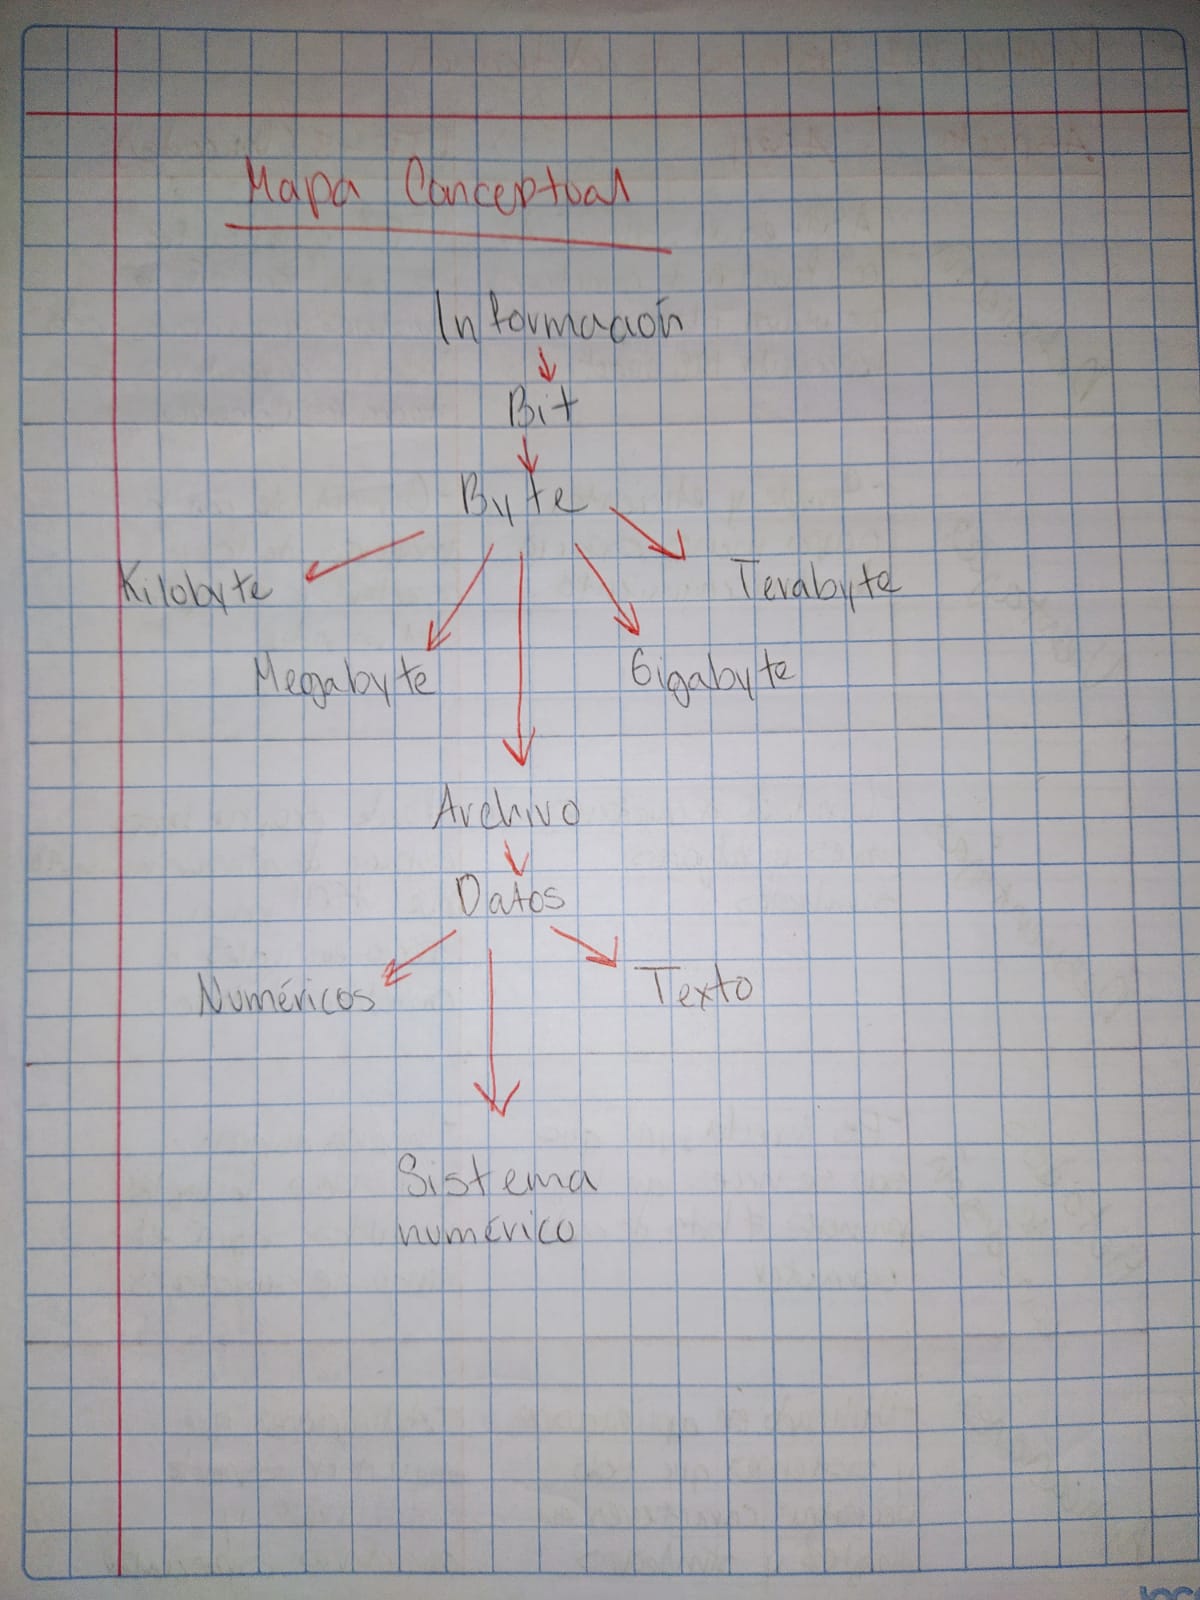 Mapa Conceptual
Información
Bit
Byte
Kilobyte
Terabyte
Megabyte
Gigabyte
Archivo
Datos
Numéricos
Texto
Sistema
numérico